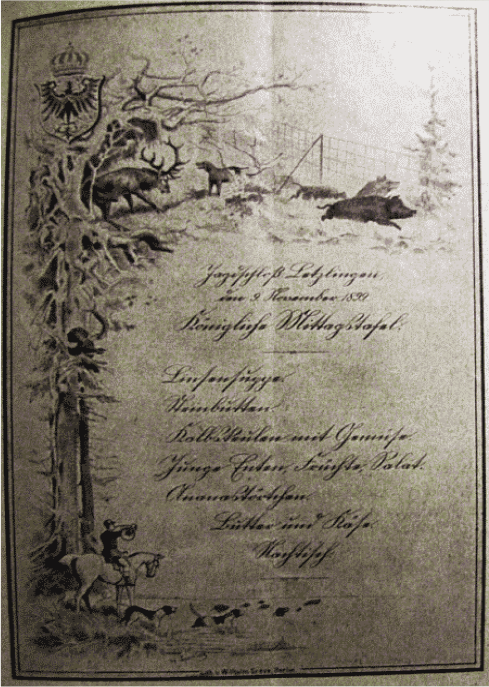 Jagdschloß Letzlingen,
den 9. November 1899
Königliche Mittagstafel.
Linsensuppe.
Steinbutten.
Kalbskeulen mit Gemüse.
Junge Enten, Früchte, Salat.
Ananastörtchen.
Butter und Käse.
Nachtisch.
Wilhelm Greve, Berlin.